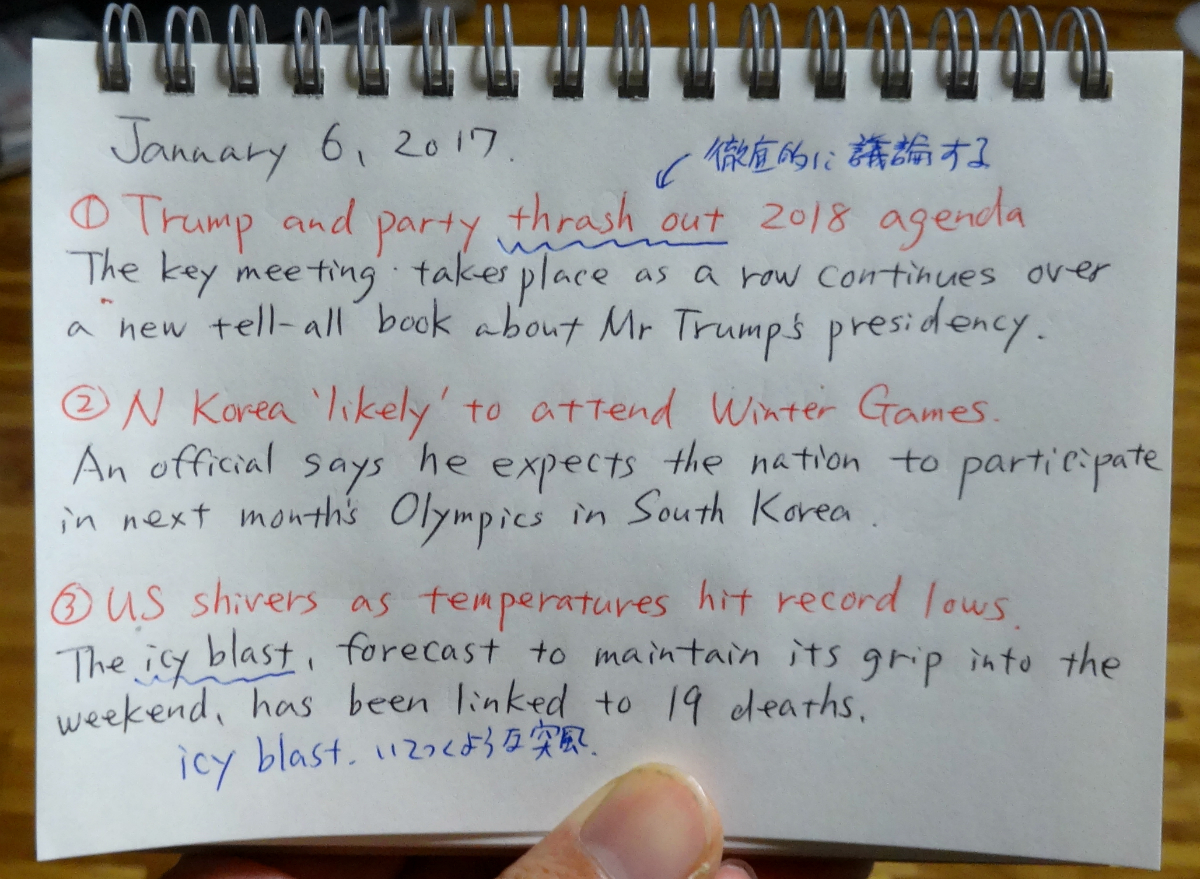 January 6, 2017.
徹底的に議論する
① Trump and party thrash out 2018 agenda
The key meeting takes place as a row continues over
a new tell-all book about Mr Trump's presidency.
② N Korea 'likely' to attend Winter Games.
An official says he expects the nation to participate
in next month's Olympics in South Korea.
③ US shivers as temperatures hit record lows.
The icy blast, forecast to maintain its grip into the
weekend, has been linked to 19 deaths.
icy blast. いてつくような突風.